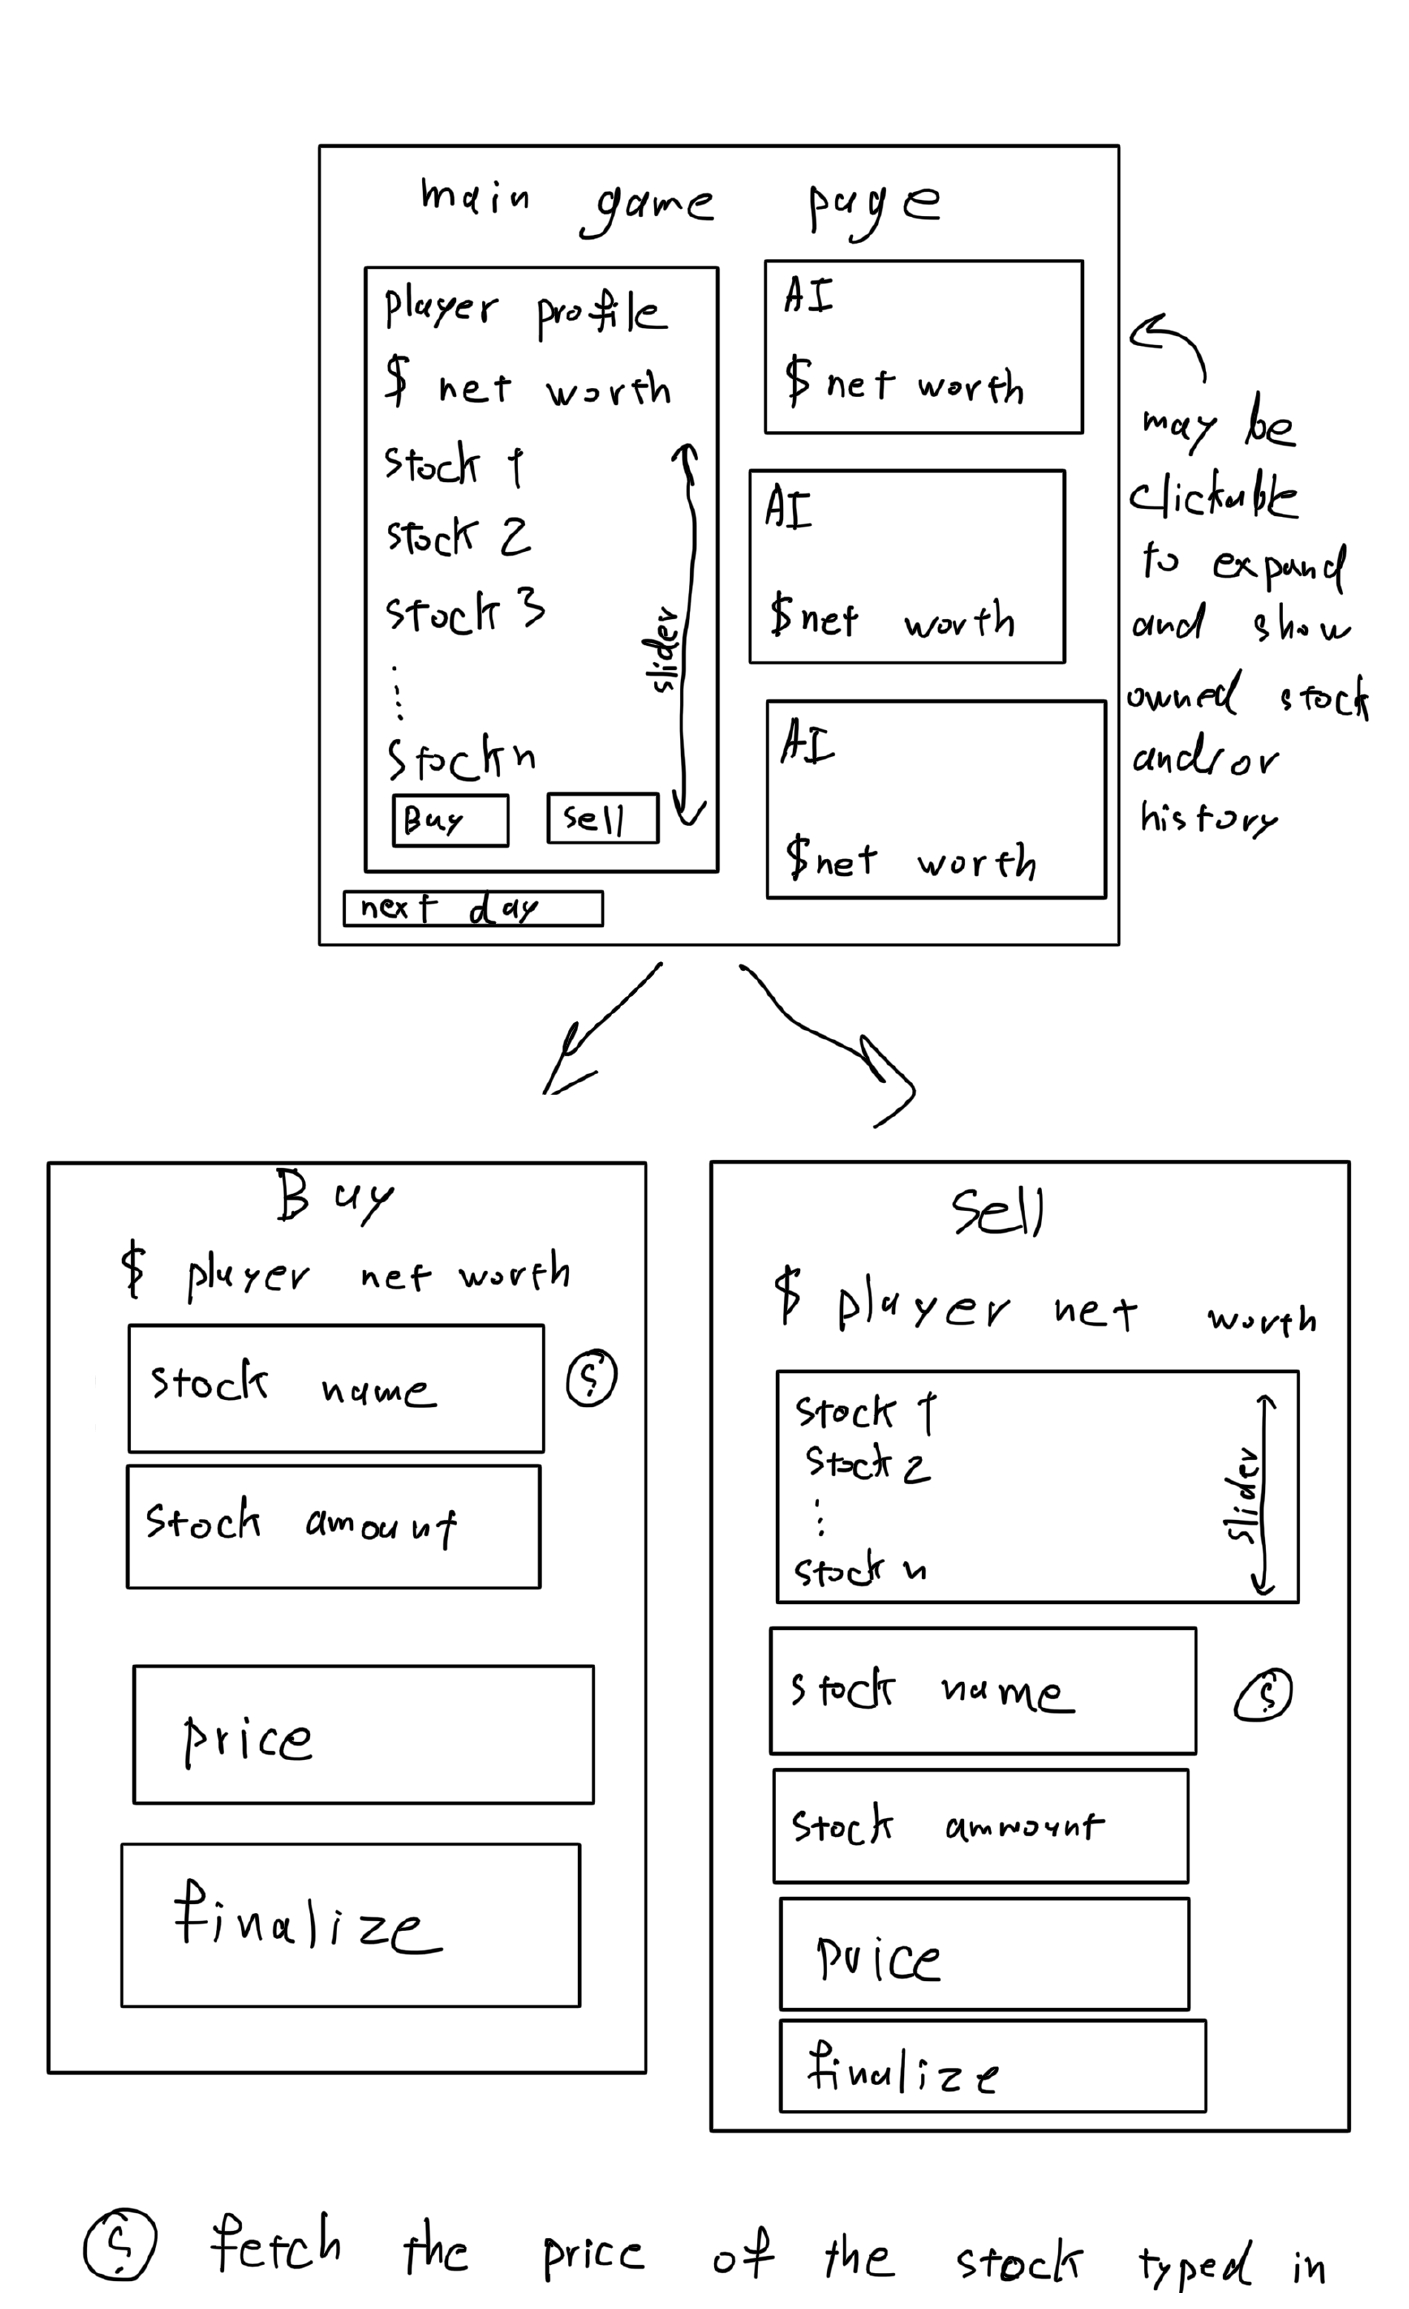 main game page
player profile
$ net worth
stock 1
stock 2
stock 3
stock n
slider
Buy
Sell
next day
AI
$ net worth
AI
$ net worth
AI
$ net worth
may be
clickable
to expand
and show
owned stock
and/or
history
Buy
$ player net worth
stock name
stock amount
price
finalize
Sell
$ player net worth
stock 1
stock 2
stock n
slider
stock name
stock ammount
price
finalize
fetch the price of the stock typed in